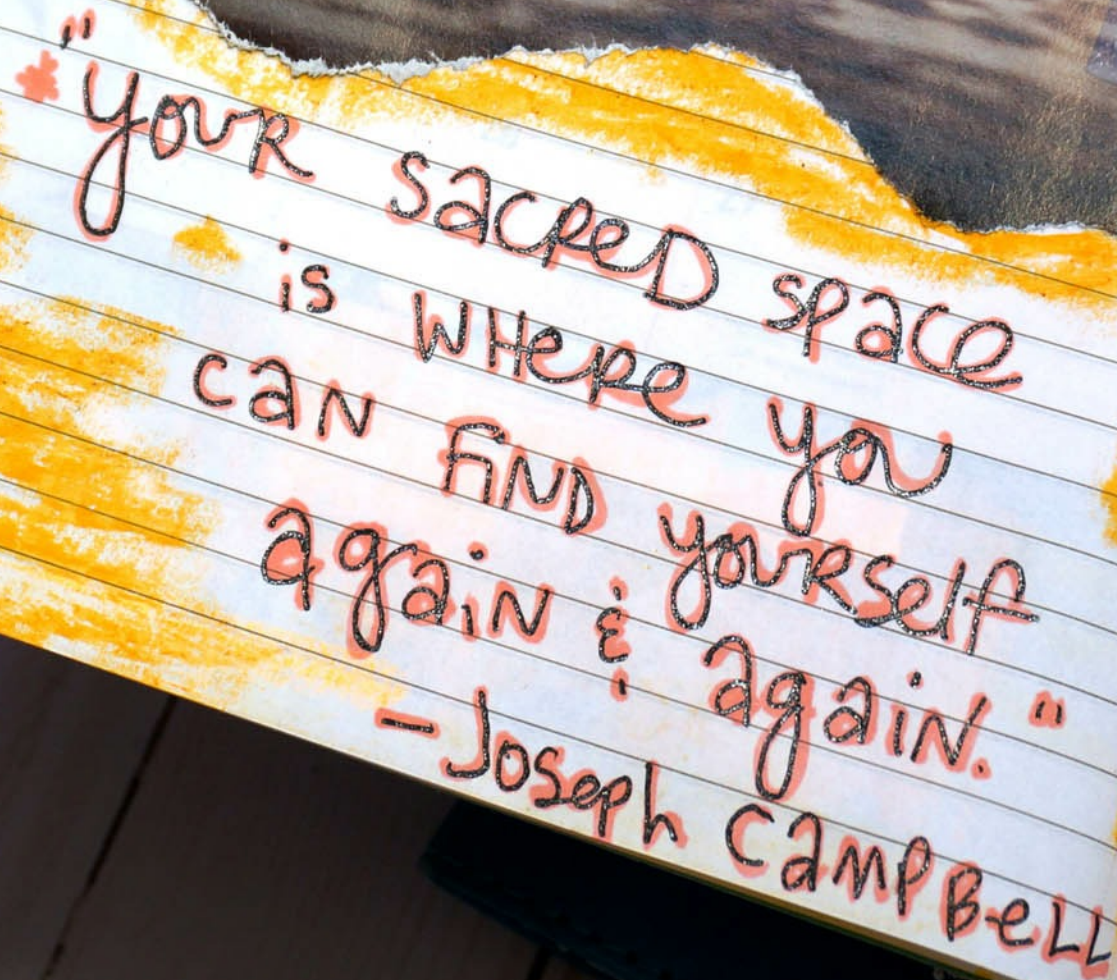 "YouR sacReD space
is wHeRe you
can FiND youRself
agaiN & agaiN."
- Joseph CampBeLL